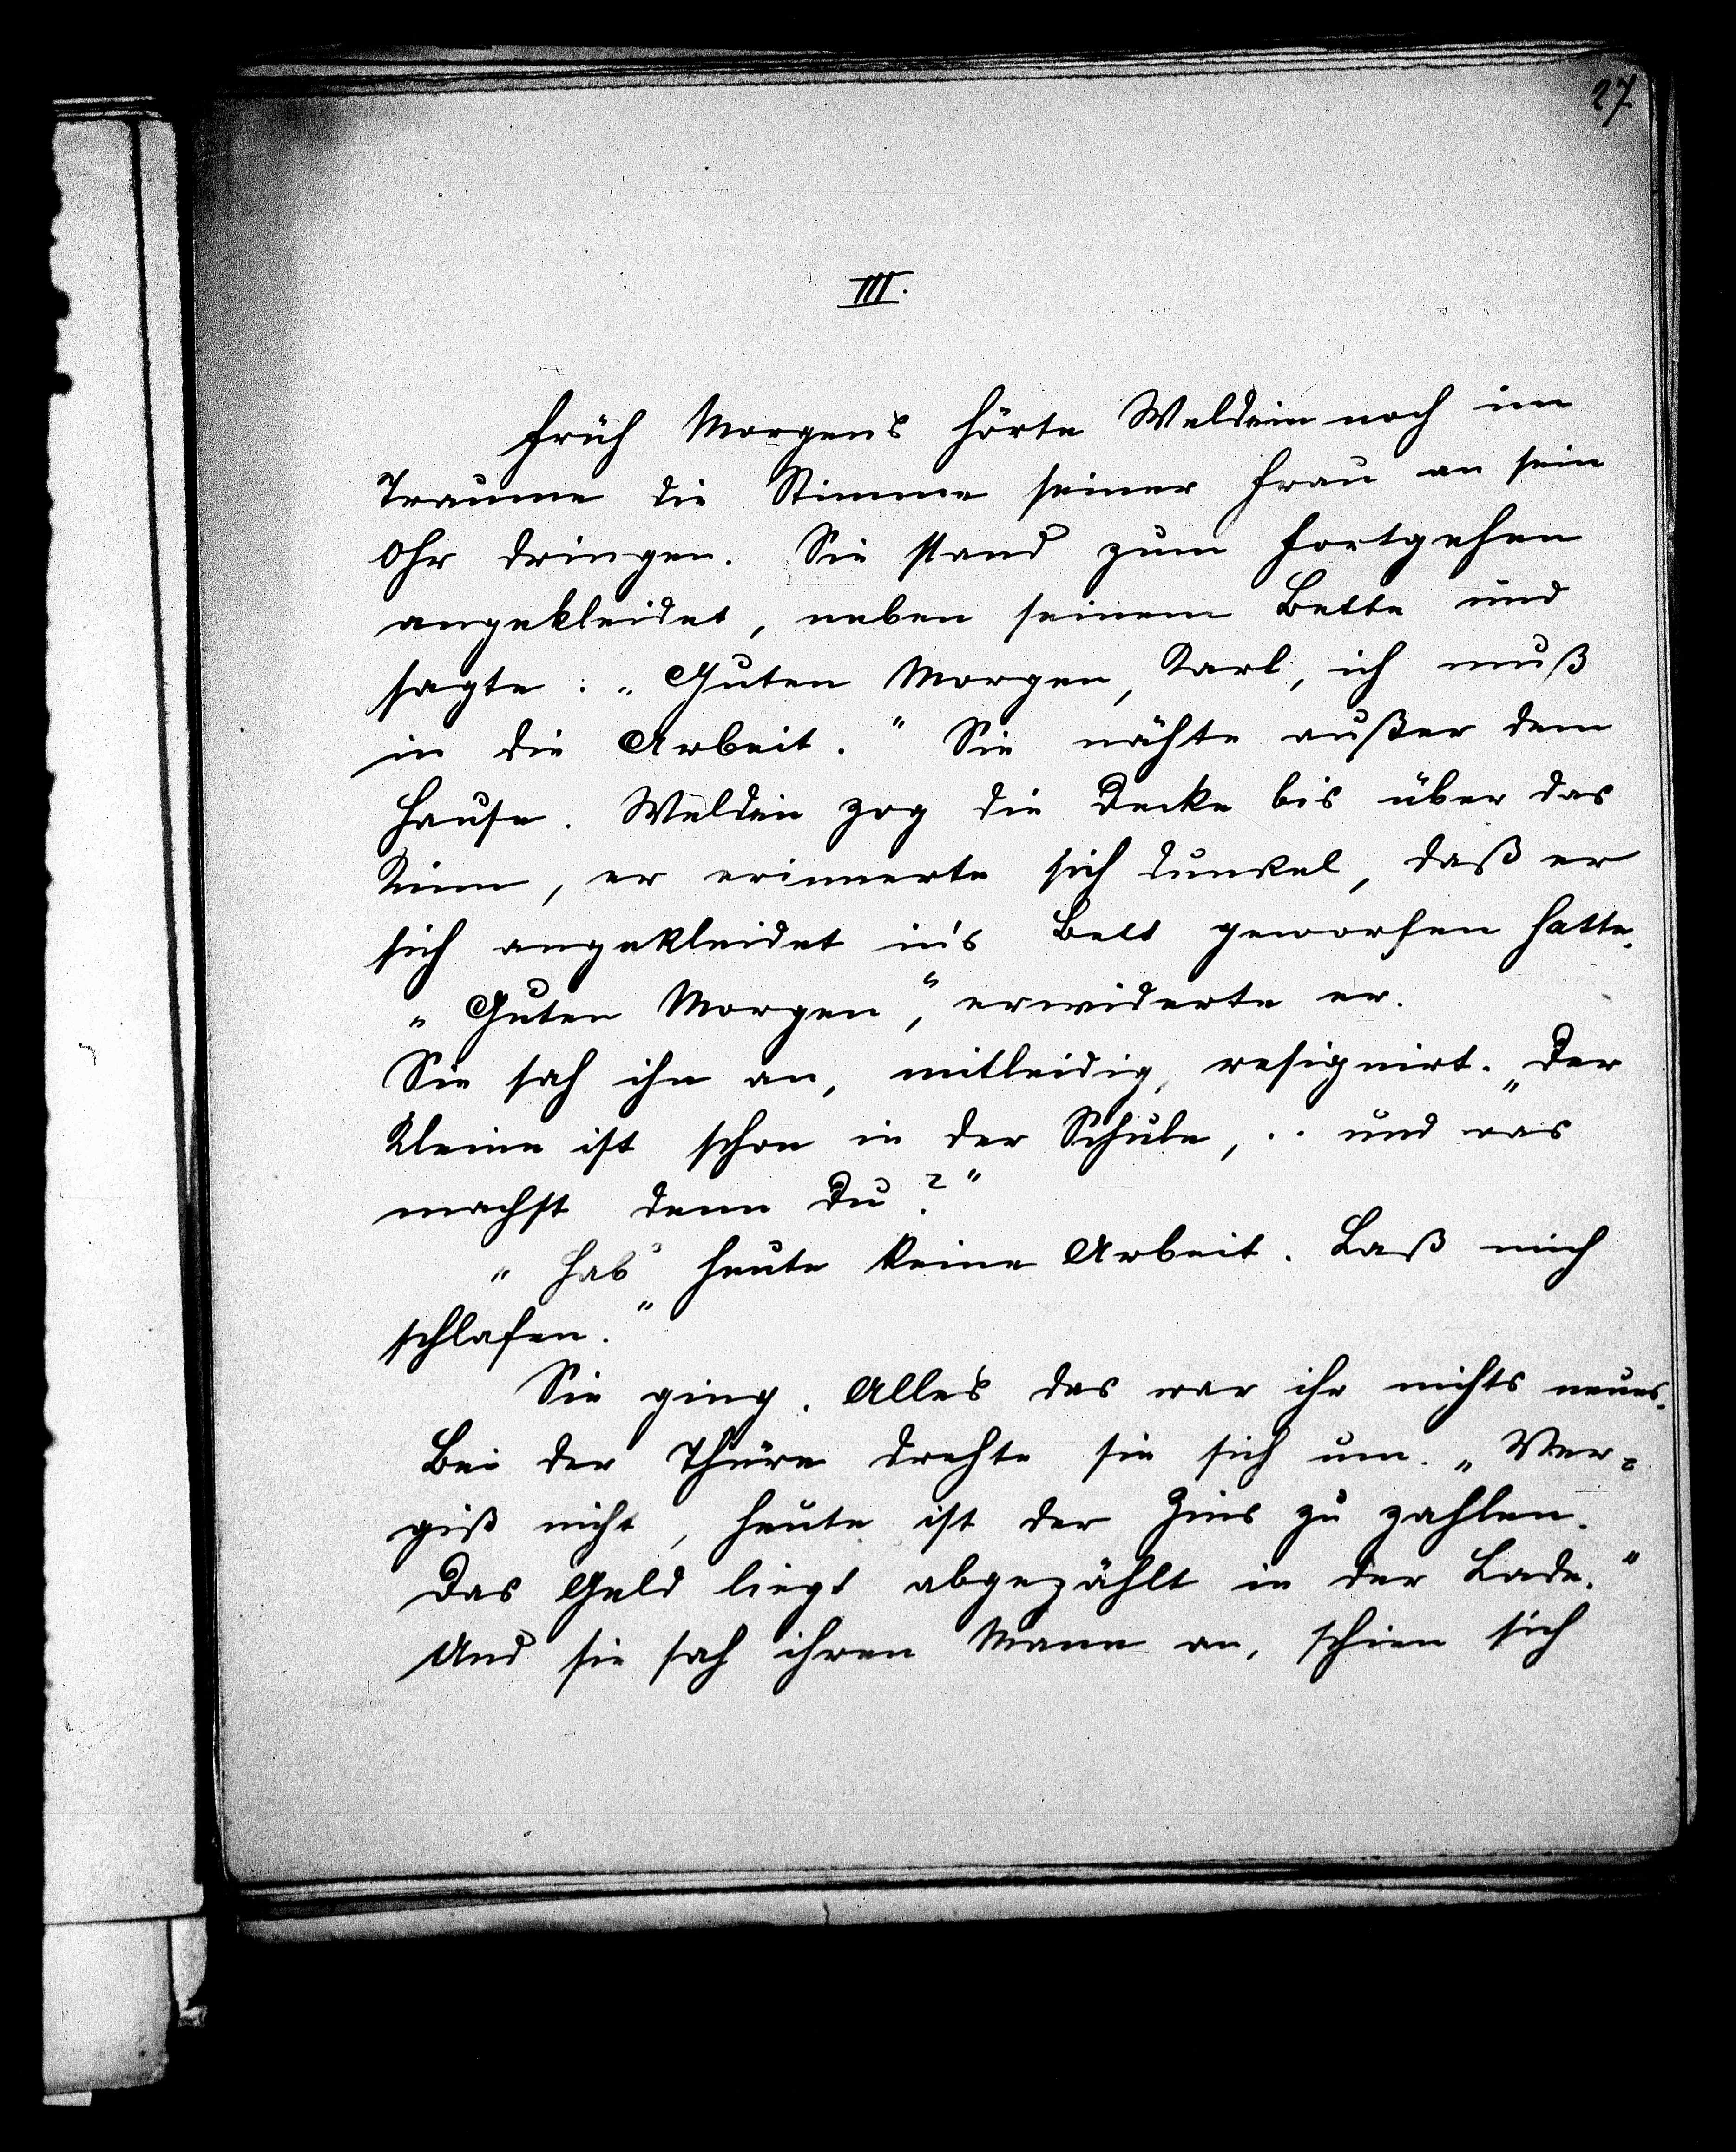 27
III.
Früh Morgens hörte Weldein noch im
Traume die Stimme seiner Frau an sein
Ohr dringen. Sie stand zum Fortgehen
angekleidet, neben seinem Bette und
sagte: „Guten Morgen, Karl, ich muß
in die Arbeit." Sie nähte außer dem
Hause. Weldein zog die Decke bis über das
Kinn, er erinnerte sich dunkel, daß er
sich angekleidet in's Bett geworfen hatte.
„Guten Morgen", erwiderte er.
Sie sah ihn an, mitleidig, resignirt. „Der
Kleine ist schon in der Schule, .. und was
machst denn Du?"
„Hab' heute keine Arbeit. Laß mich
schlafen."
Sie ging. Alles das war ihr nichts neues.
Bei der Thüre drehte sie sich um. „Ver-
giß nicht, heute ist der Zins zu zahlen.
Das Geld liegt abgezählt in der Lade."
Und sie sah ihren Mann an, schien sich